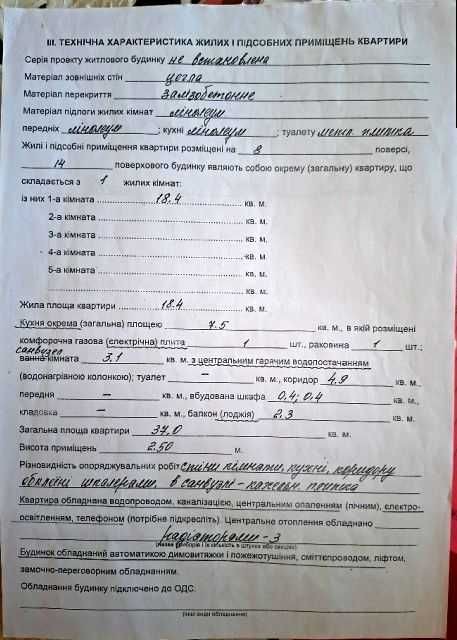 III. ТЕХНІЧНА ХАРАКТЕРИСТИКА ЖИЛИХ І ПІДСОБНИХ ПРИМІЩЕНЬ КВАРТИРИ
Серія проекту житлового будинку не встановлена
Матеріал зовнішніх стін цегла
Матеріал перекриття залізобетонне
Матеріал підлоги жилих кімнат лінолеум
передніх лінолеум ; кухні лінолеум ; туалету плитка
Жилі і підсобні приміщення квартири розміщені на 8 поверсі,
14 поверхового будинку являють собою окрему (загальну) квартиру, що
складається з 1 жилих кімнат:
із них 1-а кімната 18.4 кв. м.
2-а кімната кв. м.
3-а кімната кв. м.
4-а кімната кв. м.
5-а кімната кв. м.
кв. м.
Жила площа квартири 18.4 кв. м.
Кухня окрема (загальна) площею 7.5 кв. м., в якій розміщені
комфорочна газова (електрічна) плита 1 шт., раковина 1 шт.;
санвузел
ванна кімната 3.1 кв. м. з центральним гарячим водопостачанням
(водонагрівною колонкою); туалет – кв. м., коридор 4.9 кв. м.,
передня – кв. м., вбудована шкафа 0,4; 0,4 кв. м.,
кладовка – кв. м., балкон (лоджія) 2.3 кв. м.
Загальна площа квартири 37.0 кв. м.
Висота приміщень 2.50 м.
Різновидність опоряджувальних робіт стіни кімнати, кухні, коридору
обклеїні шпалерами, в санвузлі - кахельн. плитка
Квартира обладнана водопроводом, каналізацією, центральним опаленням (пічним), електро-
освітленням, телефоном (потрібне підкреслить). Центральне отоплення обладнано
радіаторами - 3
Будинок обладнаний автоматикою димовитяжки і пожежотушіння, сміттєпроводом, ліфтом,
замочно-переговорним обладнанням.
Обладнання будинку підключено до ОДС:
(інші види обладнання)